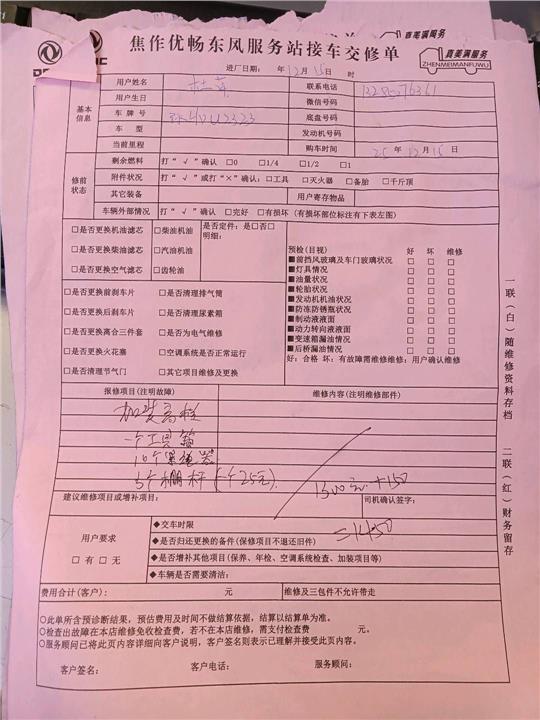 焦作优畅东风服务站接车交修单
真美满服务
ZHENMEIMANFUWU
进厂日期： 年12月15日 时
基本信息
用户姓名 联系电话
用户生日 微信号码
车牌号 底盘号码
车型 发动机号码
当前里程 购车时间 25年12月15日
修前状态
剩余燃料 打“√”确认 □0 □1/4 □1/2 □1
附件状况 打“√”或打“×”确认：□工具 □灭火器 □备胎 □千斤顶
其它装备 用户寄存物品
车辆外部情况 打“√”确认 □完好 □有损坏（有损坏部位标注有下表左图）
□是否更换机油滤芯 □柴油机油 是否定件：是□否□
□是否更换柴油滤芯 □汽油机油 明细：
□是否更换空气滤芯 □齿轮油
□是否更换前刹车片 □是否清理排气筒
□是否更换后刹车片 □是否清理尿素箱
□是否更换离合三件套 □是否为电气维修
□是否更换火花塞 □空调系统是否正常运行
□是否清理节气门 □其它项目维修及更换
预检(目视) 好 坏 维修
■前挡风玻璃及车门玻璃状况 □ □ □
■灯具情况 □ □ □
■油量状况 □ □ □
■轮胎状况 □ □ □
■发动机机油状况 □ □ □
■防冻防锈瓶状况 □ □ □
■制动液液面 □ □ □
■动力转向液液面 □ □ □
■变速箱漏油情况 □ □ □
■后桥漏油情况 □ □ □
好：合格 坏：有故障需维修维修：用户确认维修
报修项目(注明故障) 维修内容(注明维修部件)
加装高栏
一个工具箱
10个紧绳器
5个棚杆(一个25元)
1300元+150
=1450
建议维修项目或增补项目： 司机确认签字：
用户要求
□有□无
◆交车时限
◆是否归还更换的备件(保修项目不退还旧件)
◆是否增补其他项目(保养、年检、空调系统检查、加装项目等)
◆车辆是否需要清洁：
费用合计(客户)： 元 维修及三包件不允许带走
○此单所含预诊断结果，预估费用及时间不做结算依据，结算以结算单为准。
○检查出故障在本店维修免收检查费，若不在本店维修，需支付检查费 元。
○服务顾问已将此页内容详细向客户说明，客户签名则表示已理解并接受此页内容。
客户签名： 客户电话： 服务顾问：
一联(白)随维修资料存档
二联(红)财务留存